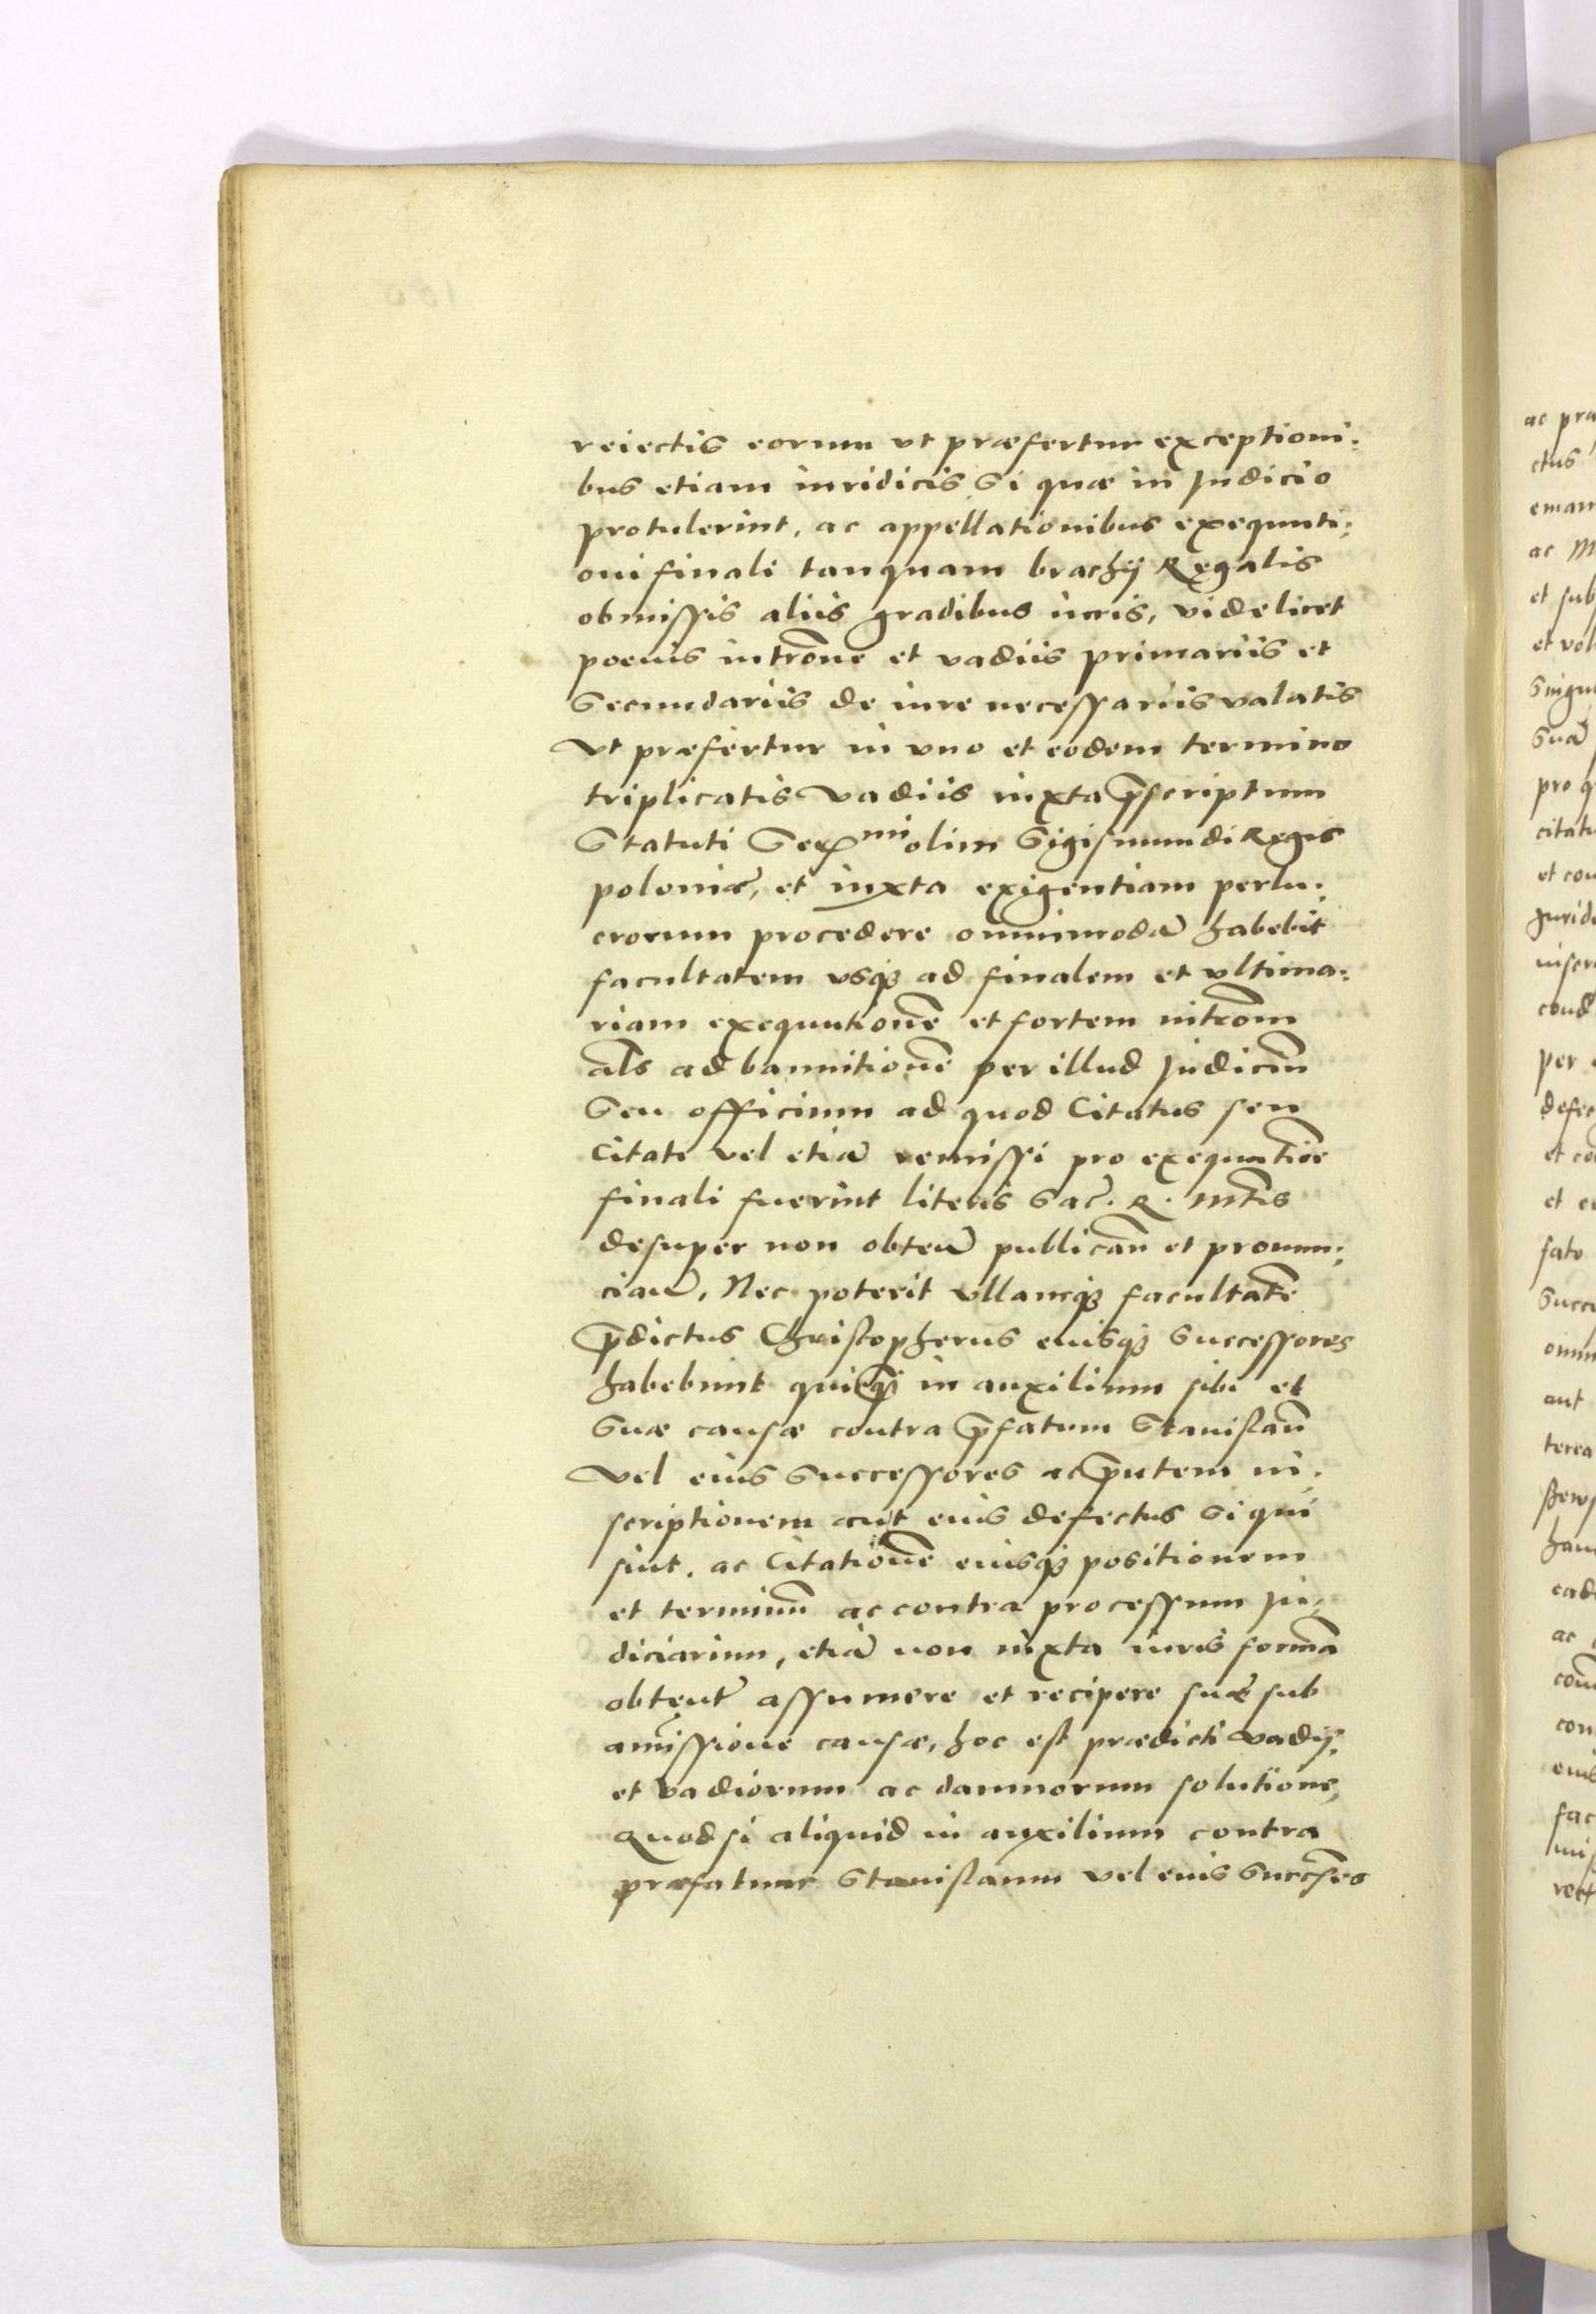 reiectis eorum vt præfertur exceptioni:
bus etiam iuridicis si quæ in Judicio
protulerint, ac appellationibus exequuti:
oni finali tanquam brachij Regalis
obmissis aliis gradibus iuris, videlicet
poenis introne et vadiis primariis et
Secundariis de iure necessariis valatis
Vt præfertur in vno et eodem termino
triplicatis vadiis iuxta p̄scriptum
Statuti Ser mi olim Sigismundi Regis
poloniæ, et iuxta exigentiam perlu:
crorum procedere omnimodā habebit
facultatem vsq3 ad finalem et vltima:
riam exequutionē et fortem introm
als ad bannitionē per illud Judiciū
Seu officium ad quod Citatus seu
Citati vel etiā remissi pro exequutioē
finali fuerint literis Sac. R. Mtis
desuper non obten publican et pronun:
cian, Nec poterit vllamq3 facultatē
p̄dictus Christopherus eiusq3 successores
habebunt in auxilium sibi et
Suæ causæ contra p̄fatum Stanislaū
Vel eius Successores ac p̄ntem in:
scriptionem aut eius defectus si qui
sint, ac Citationē eiusq3 positionem
et terminū ac contra processum Ju:
diciarium, etiā non iuxta iuris formā
obtent assumere et recipere suæ sub
amissione causæ, hoc est prædicti vadij
et vadiorum ac damnorum solutione,
Quod si aliquid in auxilium contra
præfatum Stanislaum vel eius Succses
ac pra
ctus
eman
ac M
et sub
et vol
Singu
Suā
pro q
citati
et con
Jurid
inser
cond
per
defec
et co
et e
fato
Succ
omn
aut
terea
hau
ead
ac
com
con
eius
fac